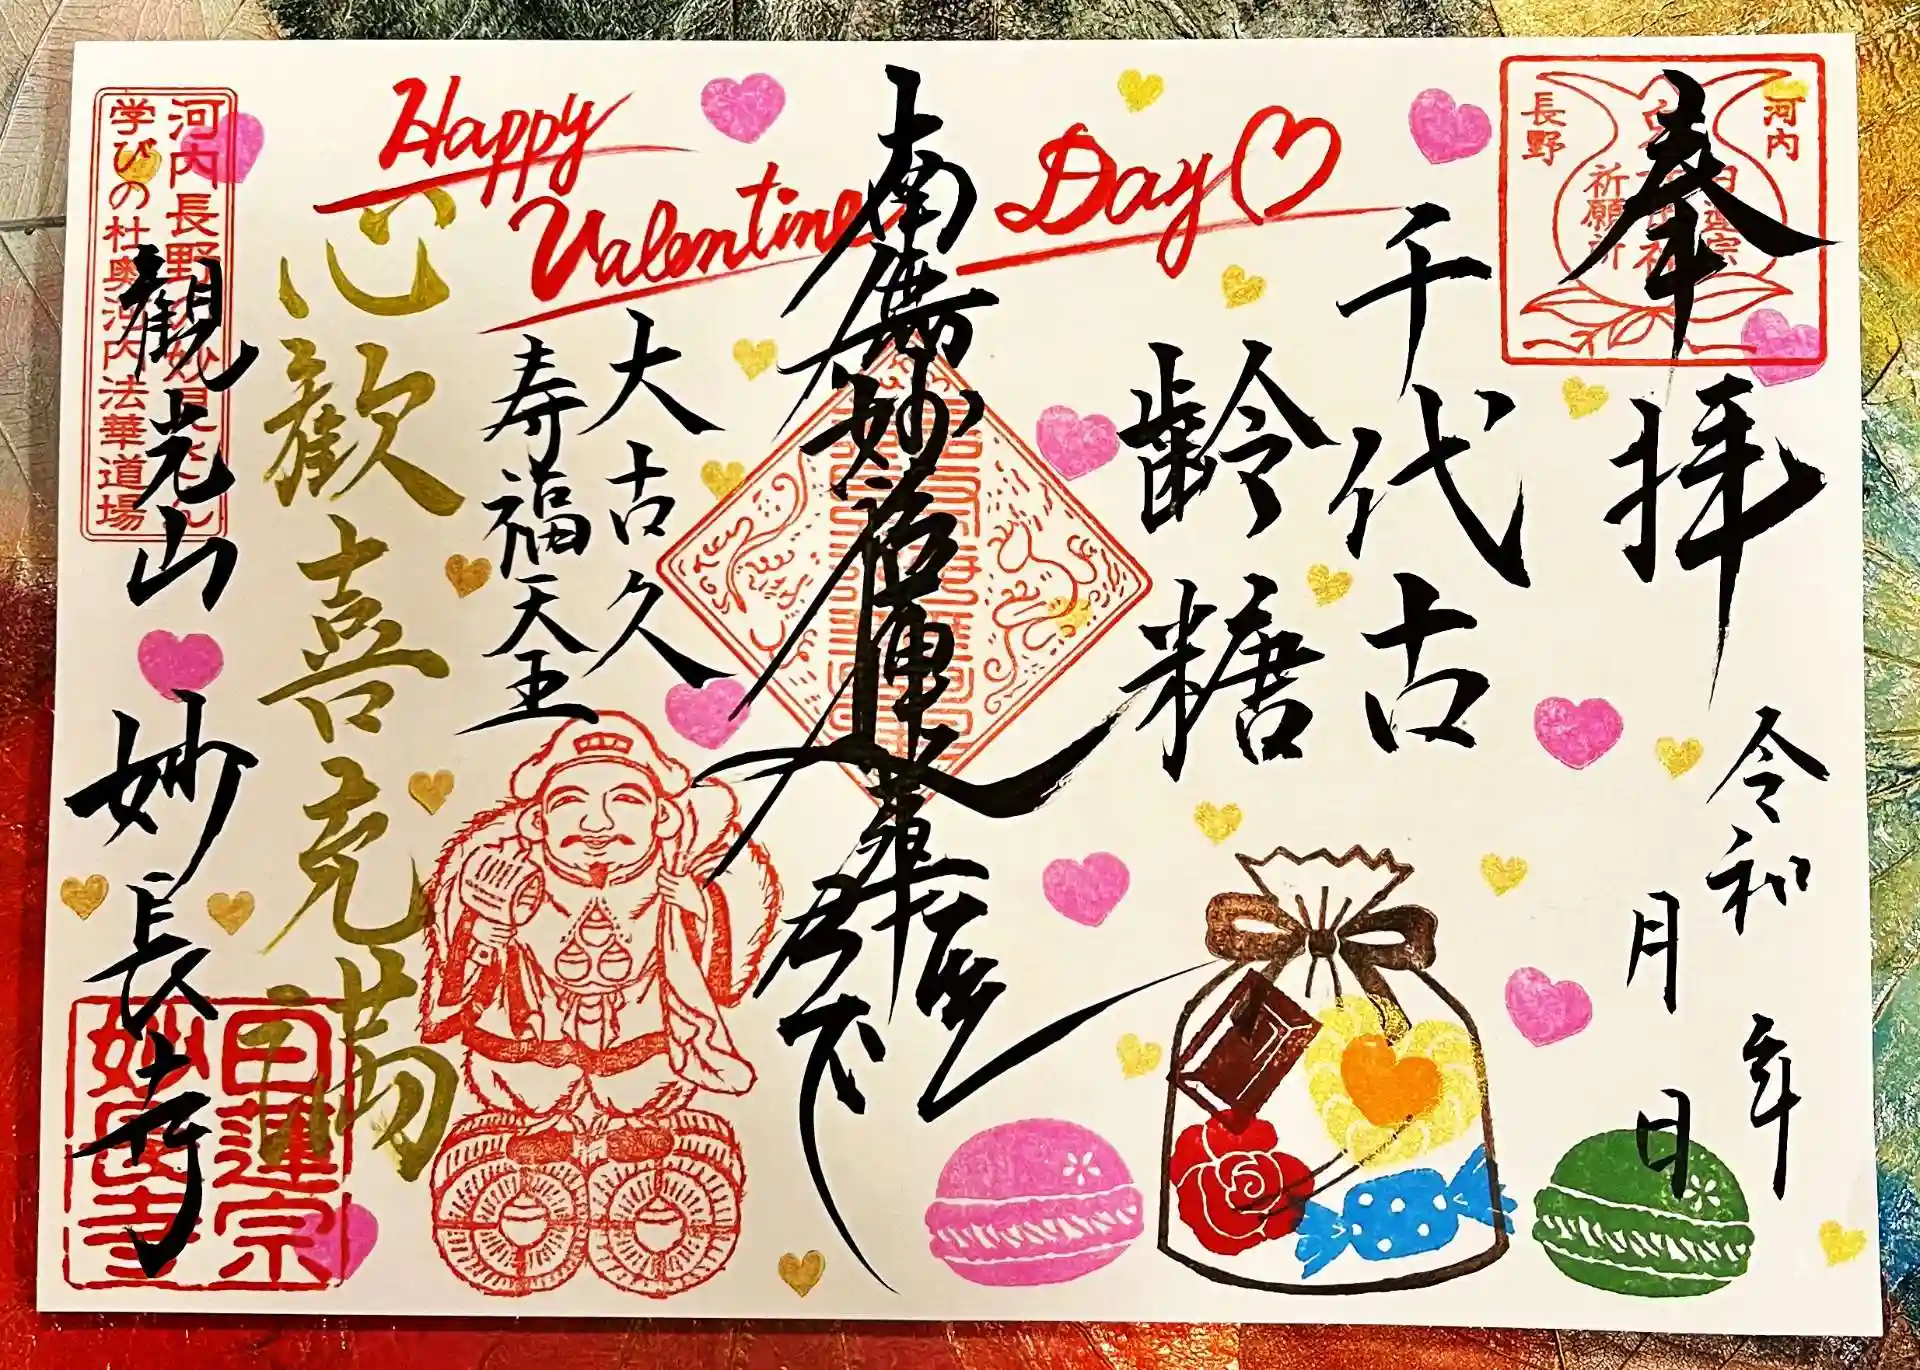 奉拝
令和 年
月 日
河内
長野
日蓮宗
祈願所
Happy
Valentine Day
千代古
齢糖
南無妙法蓮華経
大古久
寿福天王
心歓喜充満
河内長野
学びの杜奥河内法華道場
観光山
妙長寺
日蓮宗
妙長寺